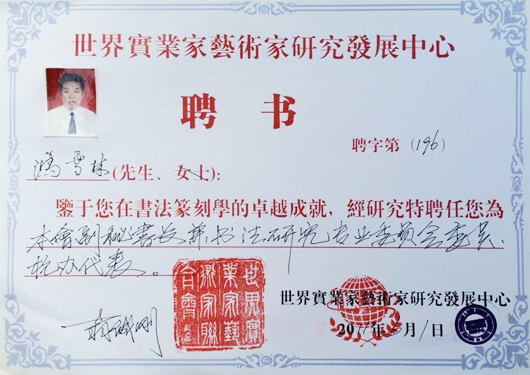 世界實業家藝術家研究發展中心
聘 书
聘字第 (196)
雪林(先生、女士):
鉴于您在书法篆刻學的卓越成就，經研究特聘任您為
本會副秘書长兼书法研究专业委員会委員、
代表。
世界實業家藝術家聯合會
世界實業家藝術家研究發展中心
年 月1日